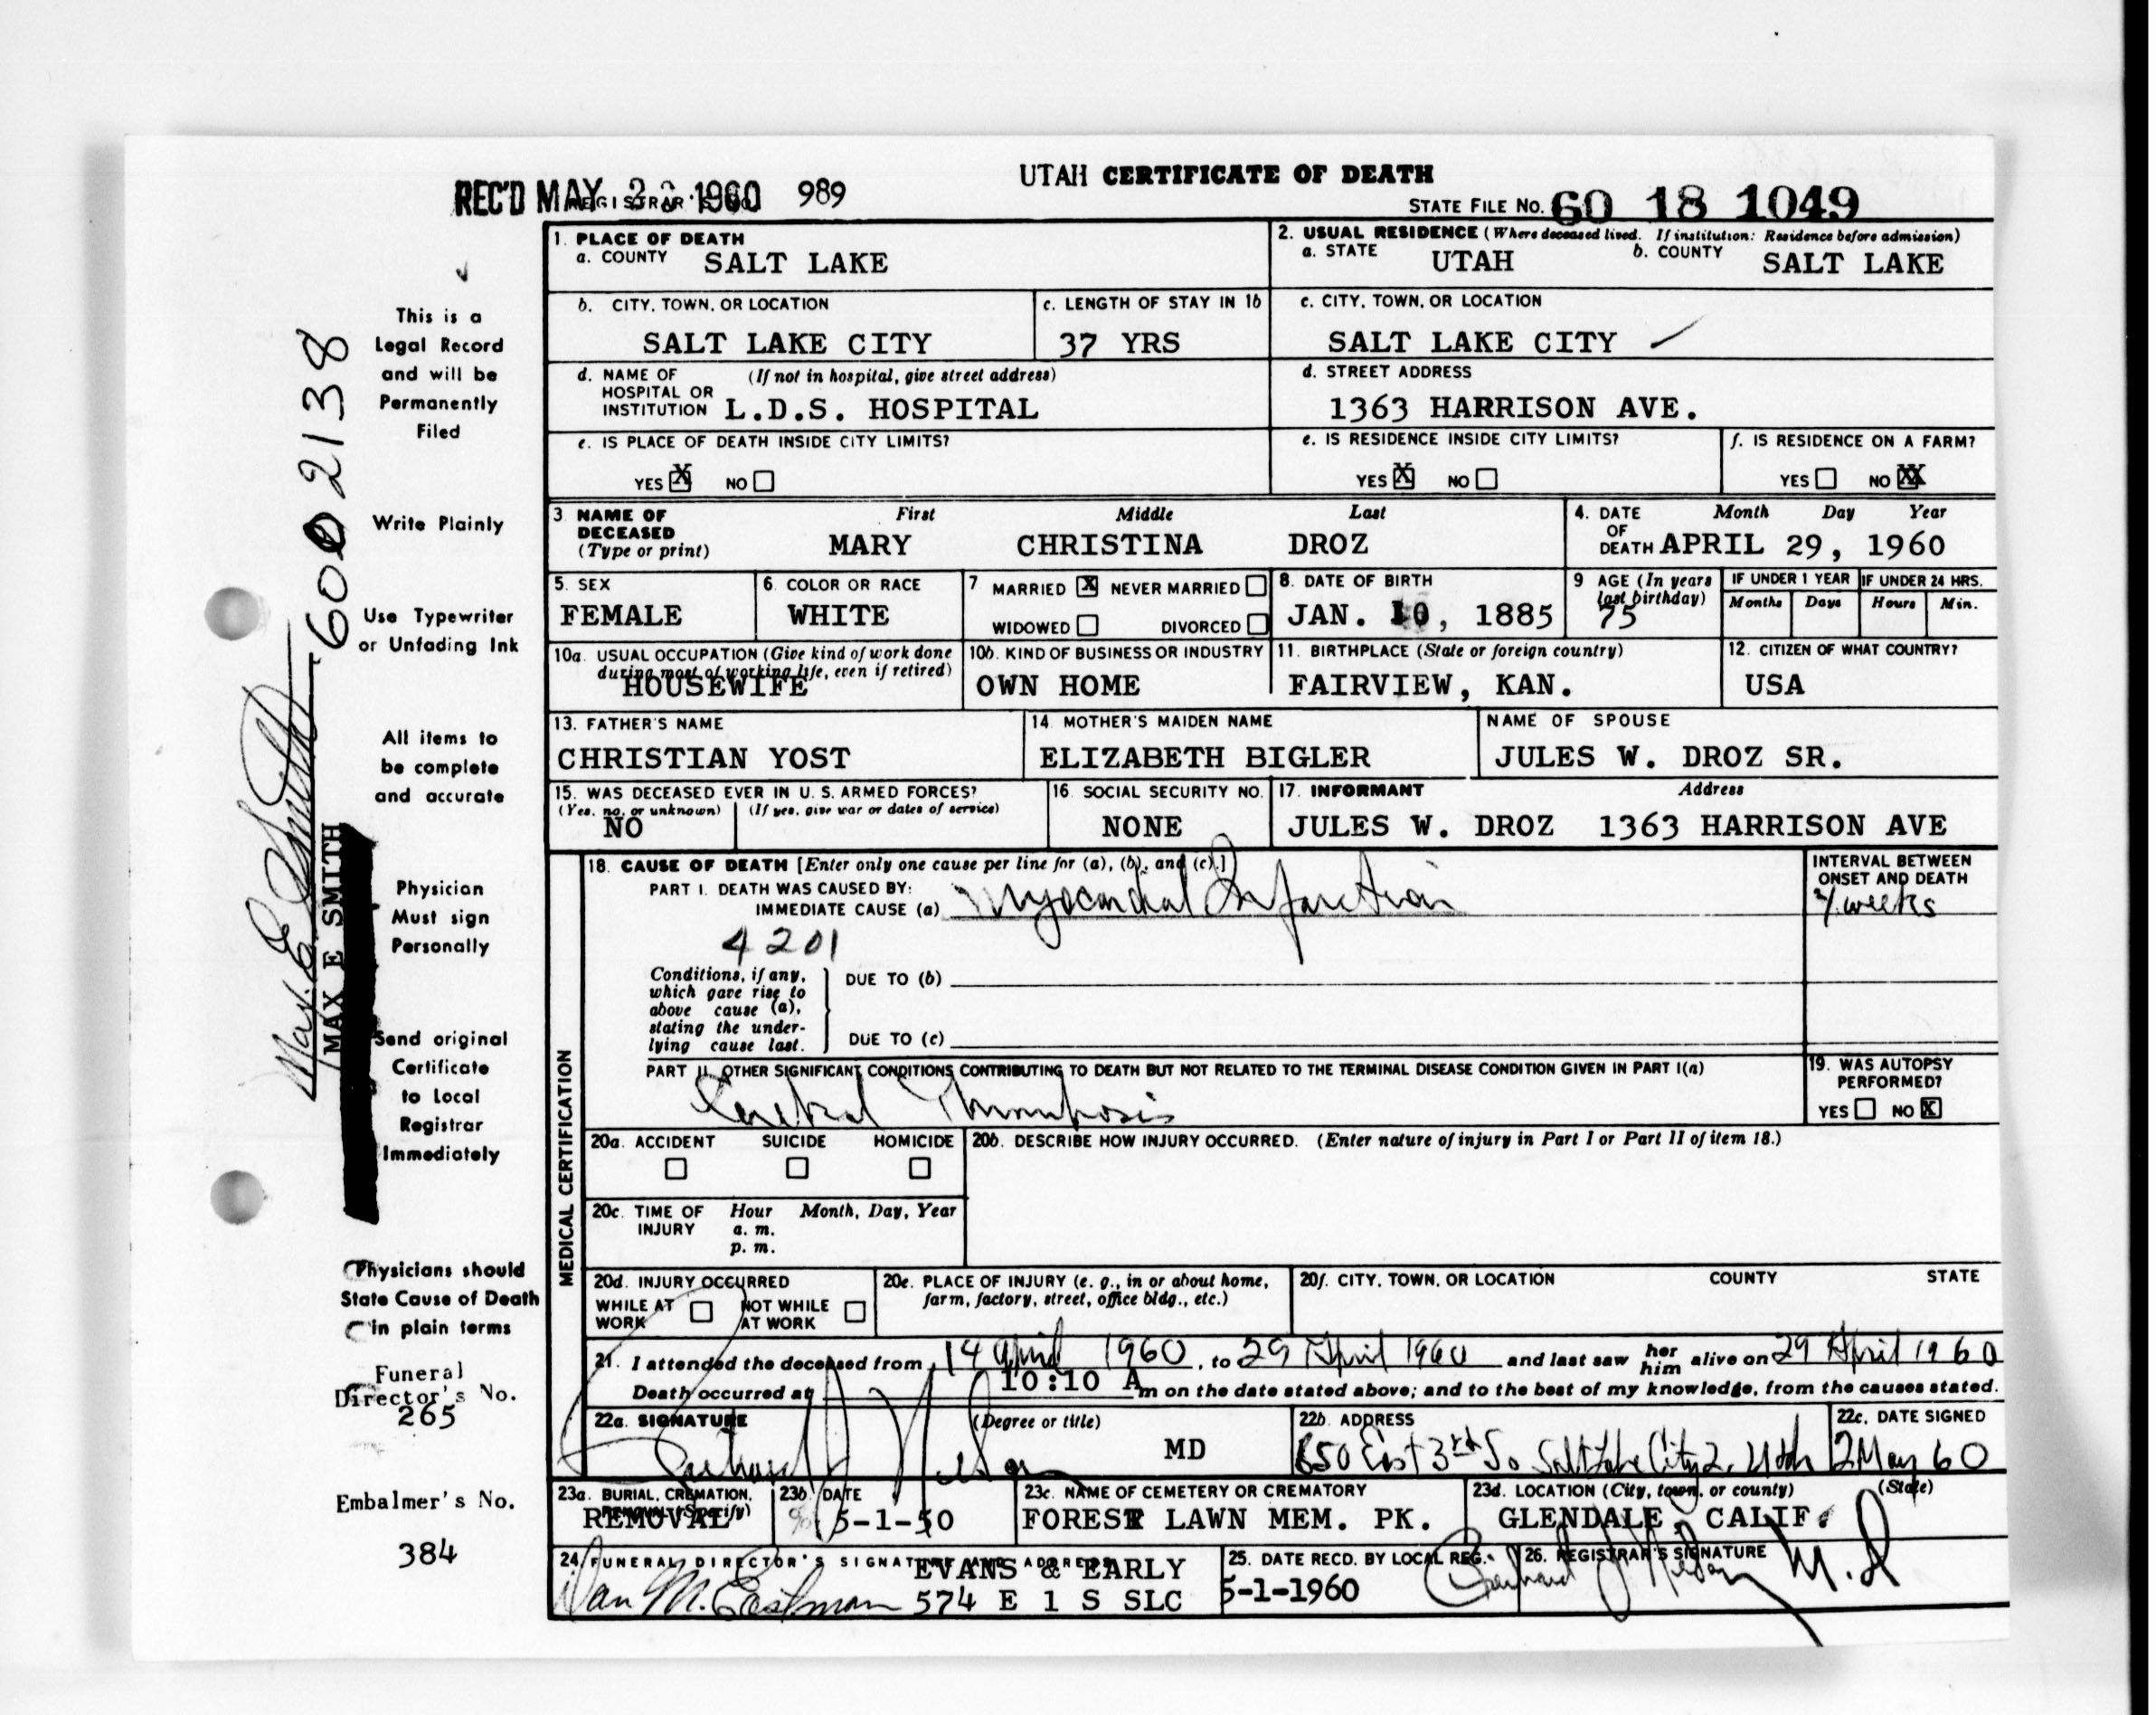 UTAH CERTIFICATE OF DEATH
REC'D MAY 1960 989
STATE FILE NO. 60 18 1049
1. PLACE OF DEATH
a. COUNTY SALT LAKE
2. USUAL RESIDENCE (Where deceased lived. If institution: Residence before admission)
a. STATE UTAH b. COUNTY SALT LAKE
b. CITY, TOWN, OR LOCATION
SALT LAKE CITY
c. LENGTH OF STAY IN 1b
37 YRS
c. CITY, TOWN, OR LOCATION
SALT LAKE CITY
d. NAME OF HOSPITAL OR INSTITUTION (If not in hospital, give street address)
L.D.S. HOSPITAL
d. STREET ADDRESS
1363 HARRISON AVE.
e. IS PLACE OF DEATH INSIDE CITY LIMITS?
YES X NO
e. IS RESIDENCE INSIDE CITY LIMITS?
YES X NO
f. IS RESIDENCE ON A FARM?
YES NO XX
3 NAME OF DECEASED (Type or print)
First Middle Last
MARY CHRISTINA DROZ
4. DATE OF DEATH Month Day Year
APRIL 29, 1960
5. SEX
FEMALE
6. COLOR OR RACE
WHITE
7 MARRIED X NEVER MARRIED
WIDOWED DIVORCED
8. DATE OF BIRTH
JAN. 10, 1885
9 AGE (In years last birthday)
75
IF UNDER 1 YEAR
Months Days
IF UNDER 24 HRS.
Hours Min.
10a. USUAL OCCUPATION (Give kind of work done during most of working life, even if retired)
HOUSEWIFE
10b. KIND OF BUSINESS OR INDUSTRY
OWN HOME
11. BIRTHPLACE (State or foreign country)
FAIRVIEW, KAN.
12. CITIZEN OF WHAT COUNTRY?
USA
13. FATHER'S NAME
CHRISTIAN YOST
14. MOTHER'S MAIDEN NAME
ELIZABETH BIGLER
NAME OF SPOUSE
JULES W. DROZ SR.
15. WAS DECEASED EVER IN U. S. ARMED FORCES?
(Yes, no, or unknown) (If yes, give war or dates of service)
NO
16. SOCIAL SECURITY NO.
NONE
17. INFORMANT Address
JULES W. DROZ 1363 HARRISON AVE
MEDICAL CERTIFICATION
18. CAUSE OF DEATH [Enter only one cause per line for (a), (b), and (c).]
PART I. DEATH WAS CAUSED BY:
IMMEDIATE CAUSE (a) Myocardial Infarction
INTERVAL BETWEEN ONSET AND DEATH
weeks
4201
Conditions, if any, which gave rise to above cause (a), stating the underlying cause last.
DUE TO (b)
DUE TO (c)
PART II. OTHER SIGNIFICANT CONDITIONS CONTRIBUTING TO DEATH BUT NOT RELATED TO THE TERMINAL DISEASE CONDITION GIVEN IN PART I(a)
Cerebral Thrombosis
19. WAS AUTOPSY PERFORMED?
YES NO X
20a. ACCIDENT SUICIDE HOMICIDE
20b. DESCRIBE HOW INJURY OCCURRED. (Enter nature of injury in Part I or Part II of item 18.)
20c. TIME OF INJURY Hour Month, Day, Year
a. m.
p. m.
20d. INJURY OCCURRED
WHILE AT WORK NOT WHILE AT WORK
20e. PLACE OF INJURY (e. g., in or about home, farm, factory, street, office bldg., etc.)
20f. CITY, TOWN, OR LOCATION COUNTY STATE
21. I attended the deceased from 14 April 1960, to 29 April 1960 and last saw her him alive on 29 April 1960
Death occurred at 10:10 A m on the date stated above; and to the best of my knowledge, from the causes stated.
22a. SIGNATURE (Degree or title)
MD
22b. ADDRESS
650 East 3rd So Salt Lake City 2, Utah
22c. DATE SIGNED
2 May 60
23a. BURIAL, CREMATION, REMOVAL (Specify)
REMOVAL
23b. DATE
5-1-50
23c. NAME OF CEMETERY OR CREMATORY
FOREST LAWN MEM. PK.
23d. LOCATION (City, town, or county) (State)
GLENDALE, CALIF.
24. FUNERAL DIRECTOR'S SIGNATURE AND ADDRESS
EVANS & EARLY
Dan M. Eastman 574 E 1 S SLC
25. DATE RECD. BY LOCAL REG.
5-1-1960
26. REGISTRAR'S SIGNATURE
M.D
This is a
Legal Record
and will be
Permanently
Filed
Write Plainly
Use Typewriter
or Unfading Ink
All items to
be complete
and accurate
Physician
Must sign
Personally
Send original
Certificate
to Local
Registrar
Immediately
Physicians should
State Cause of Death
in plain terms
Funeral
Director's No.
265
Embalmer's No.
384
600 2138
Max E. Smith
MAX E SMITH